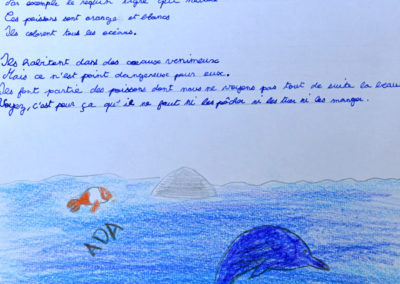 Par exemple le requin tigre qui
Ces poissons sont orange et blancs
Ils colorent tous les océans.
Ils habitent dans des coraux venimeux
Mais ce n'est point dangereux pour eux.
Ils font partie des poissons dont nous ne voyons pas tout de suite la beau
Voyez, c'est pour ça qu'il ne faut ni les pêcher ni les tuer ni les manger.
ADA